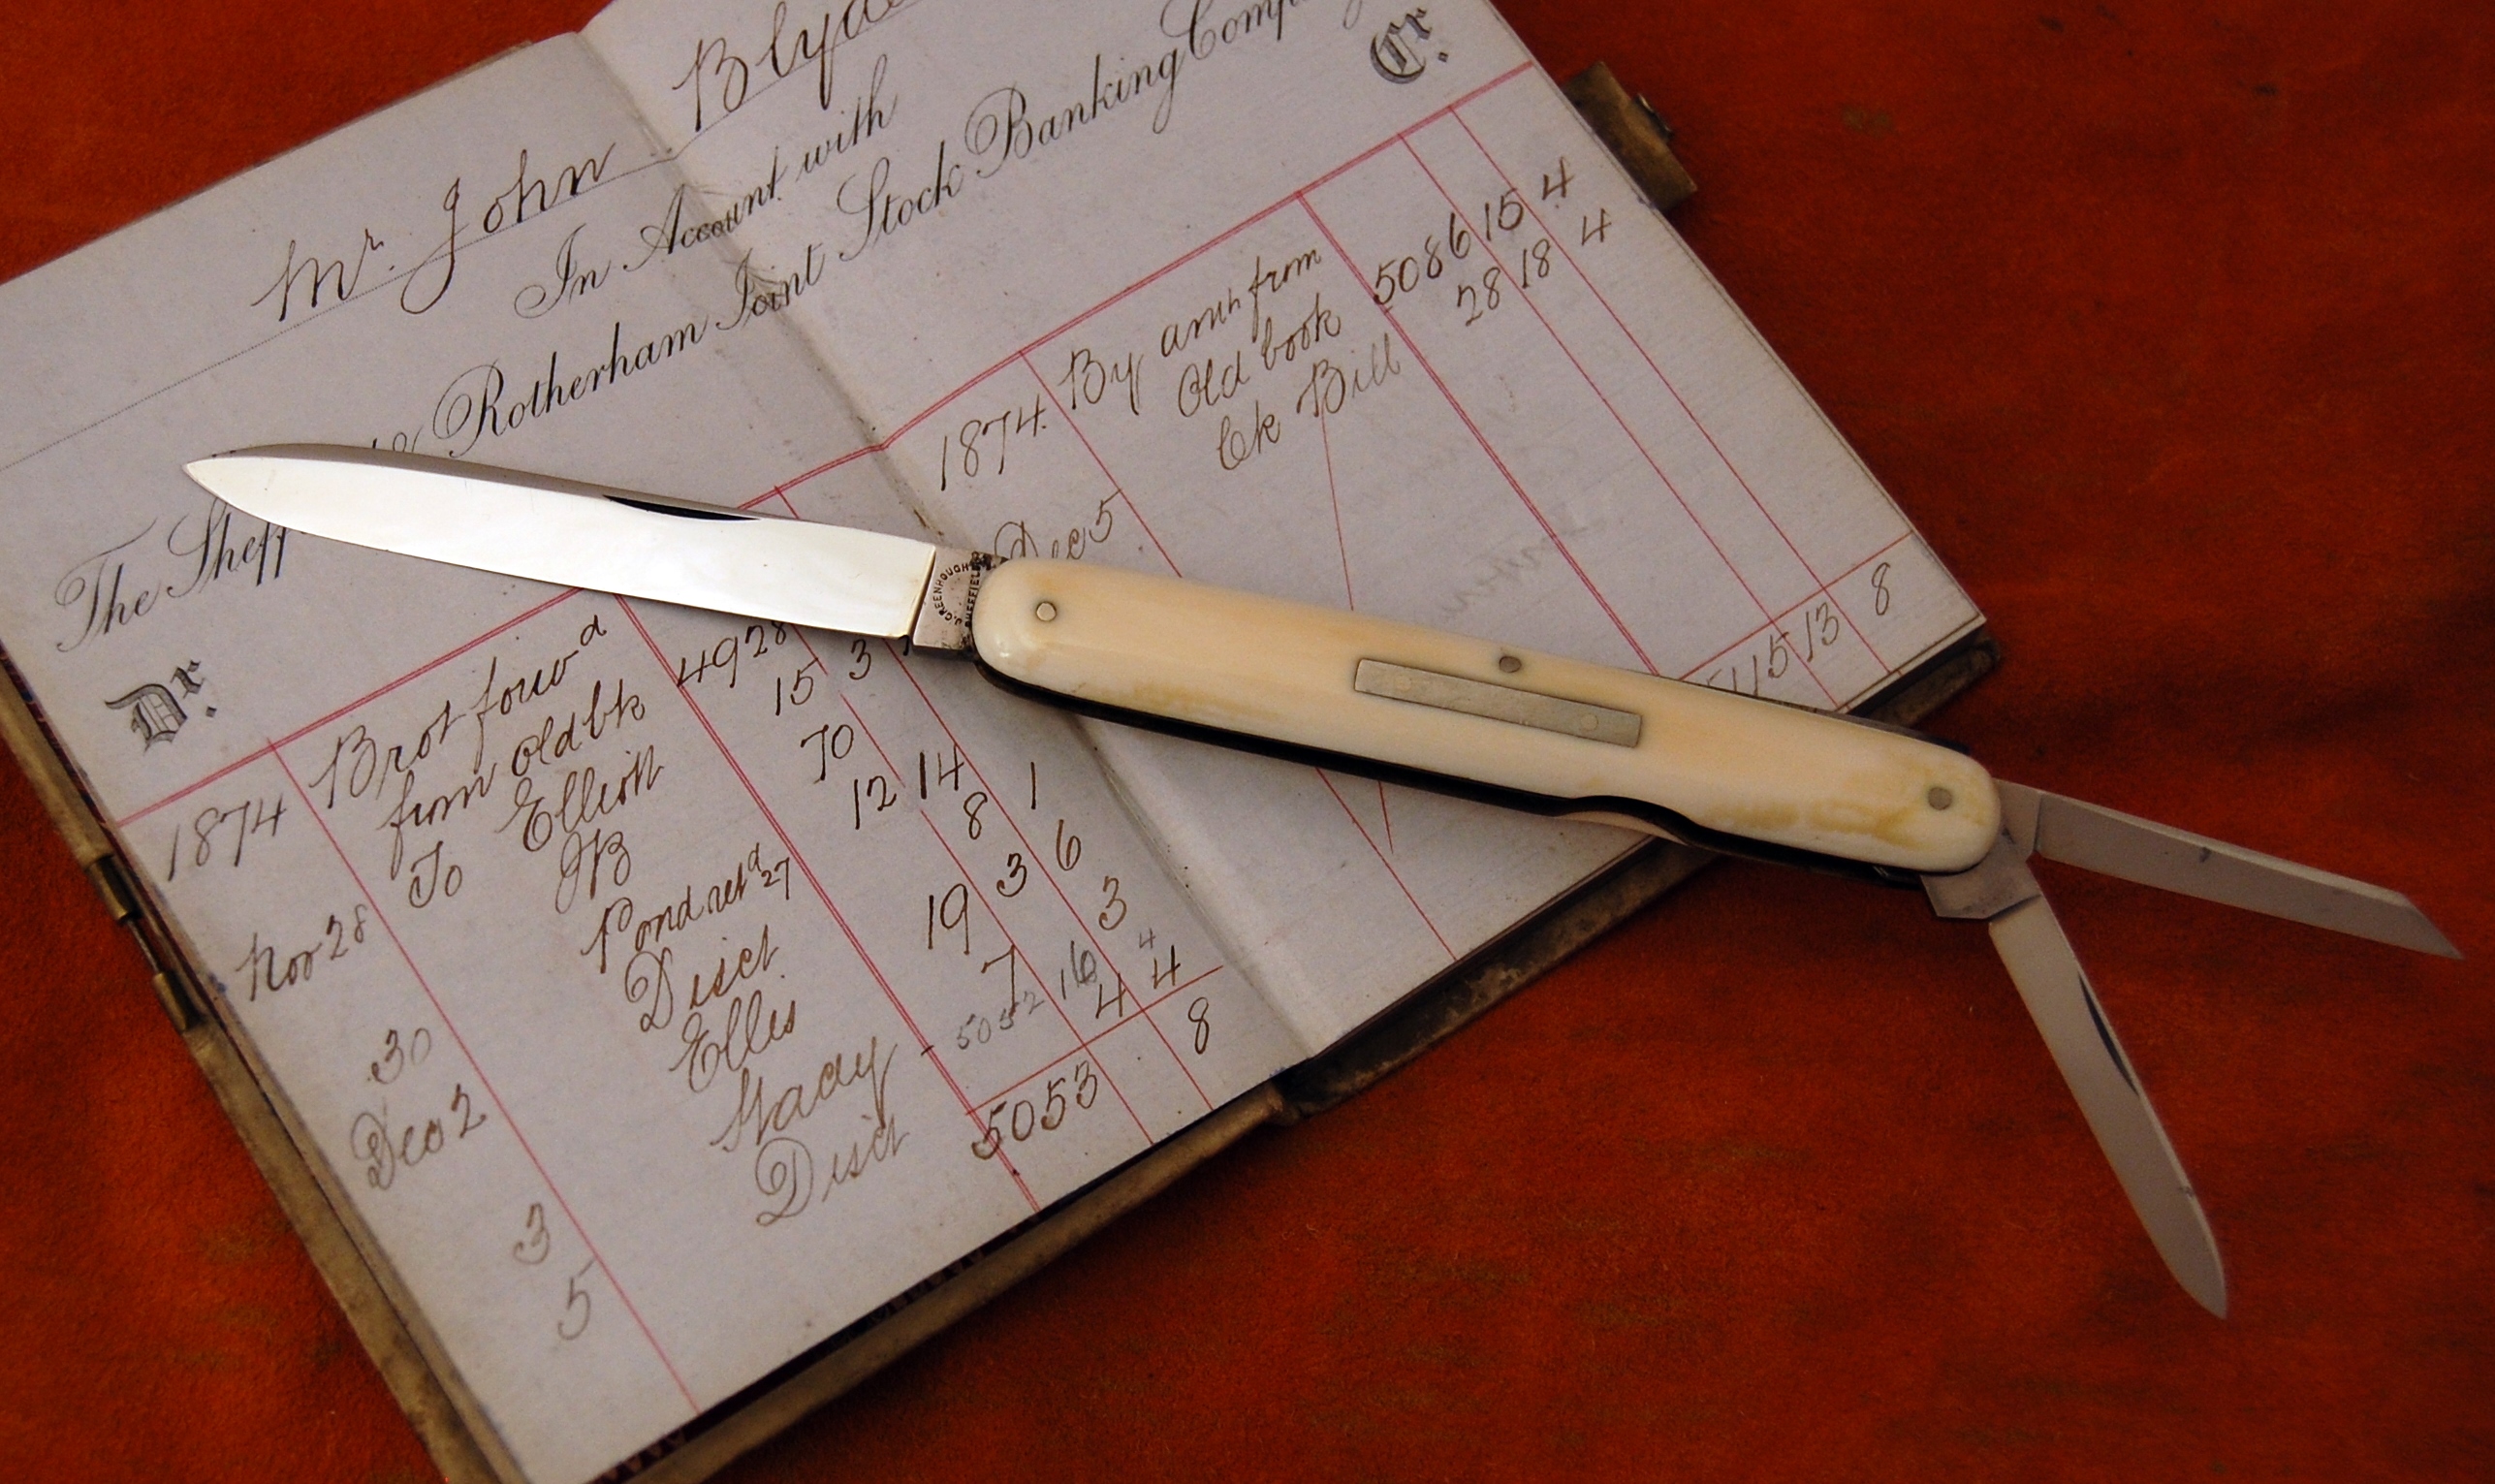 Mr. John Blyde
In Account with
The Sheff & Rotherham Joint Stock Banking Comp
Dr.
Cr.
1874 Brot forwd 4928
from old bk 15 3
To Elliott 70
Nov 28 B 12 14 1
Pond retd 27 8 6
30 Disct 19 3 3
Dec 2 Ellis 7 4 4
5052 16 4
3
5 Disct 5053 8
1874. By amt from
Old book 5086 15 4
Dec 5 Ck Bill 28 18 4
5115 13 8
J. GREENHOUGH
SHEFFIELD